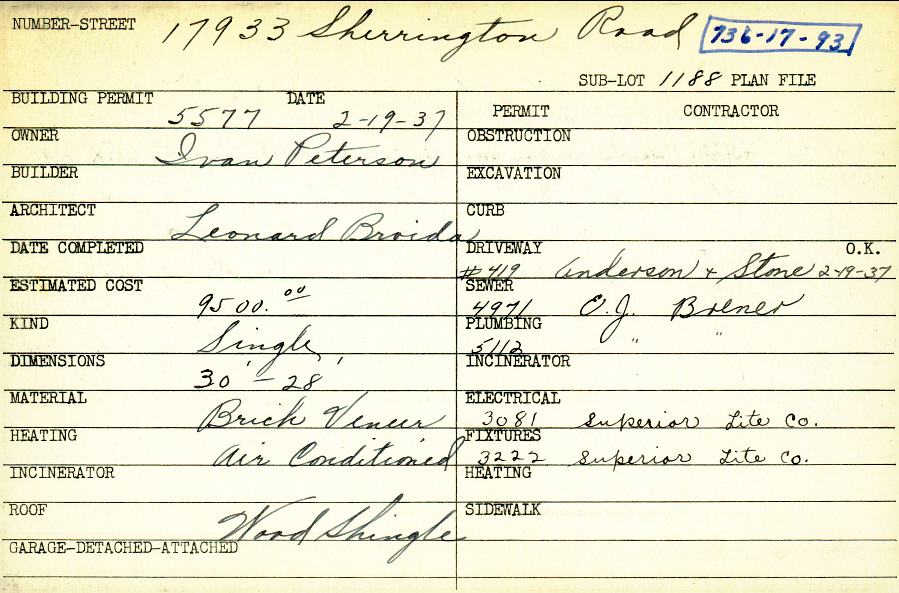 NUMBER-STREET 17933 Sherrington Road 736-17-93
SUB-LOT 1188 PLAN FILE
BUILDING PERMIT 5577 DATE 2-19-37
PERMIT CONTRACTOR
OWNER Ivan Peterson
OBSTRUCTION
BUILDER
EXCAVATION
ARCHITECT Leonard Broida
CURB
DATE COMPLETED
DRIVEWAY #419 Anderson + Stone O.K. 2-19-37
ESTIMATED COST 9500.00
SEWER 4971 E.J. Brener
KIND Single
PLUMBING 5112 " "
DIMENSIONS 30' - 28'
INCINERATOR
MATERIAL Brick Veneer
ELECTRICAL 3081 Superior Lite Co.
HEATING Air Conditioned
FIXTURES 3222 Superior Lite Co.
INCINERATOR
HEATING
ROOF Wood Shingle
SIDEWALK
GARAGE-DETACHED-ATTACHED